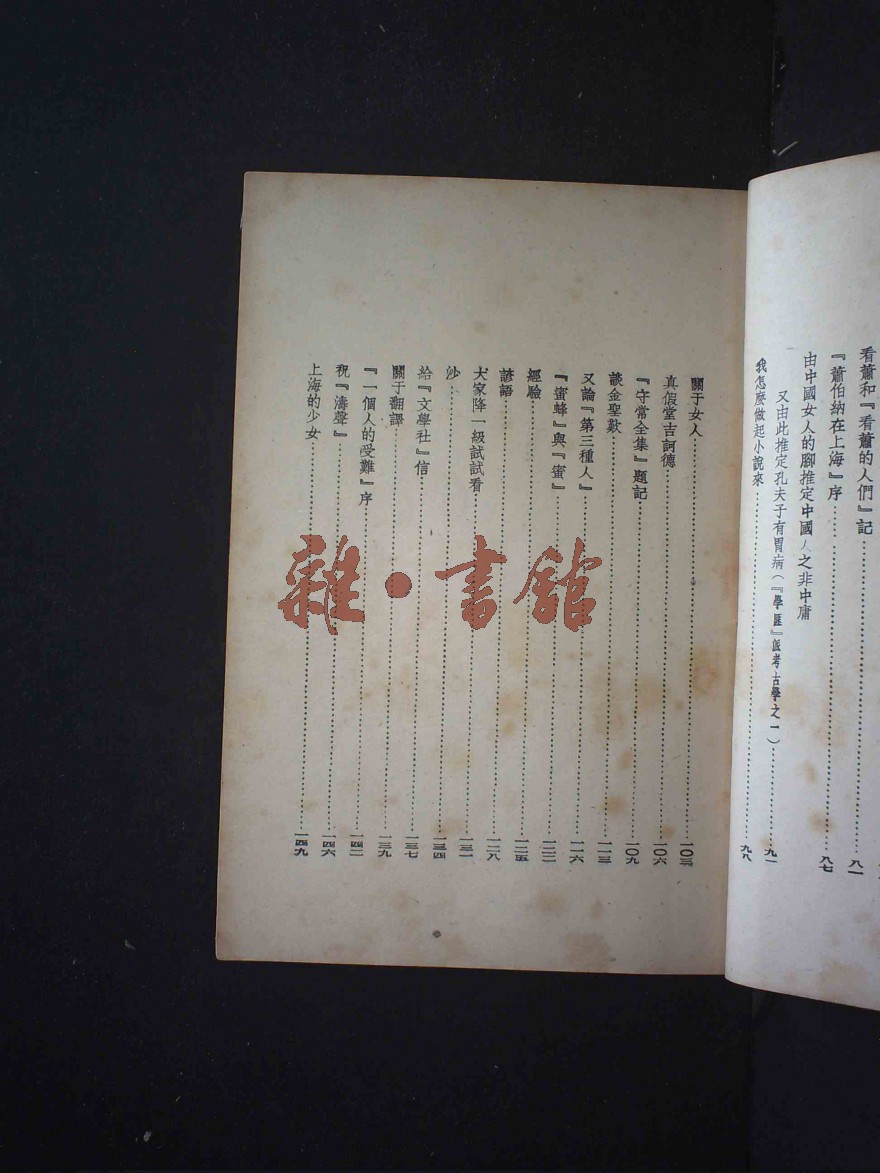 看蕭和『看蕭的人們』記……八一
『蕭伯納在上海』序……八七
由中國女人的腳推定中國人之非中庸
又由此推定孔夫子有胃病(『學匪』派考古學之一)……九一
我怎麼做起小說來……九八
關于女人……一〇三
真假堂吉訶德……一〇六
『守常全集』題記……一〇九
談金聖歎……一一三
又論『第三種人』……一一六
『蜜蜂』與『蜜』……一二三
經驗……一二五
諺語……一二八
大家降一級試試看……一三一
沙……一三四
給『文學社』信……一三七
關于翻譯……一三九
『一個人的受難』序……一四二
祝『濤聲』……一四六
上海的少女……一四九
雜·書館